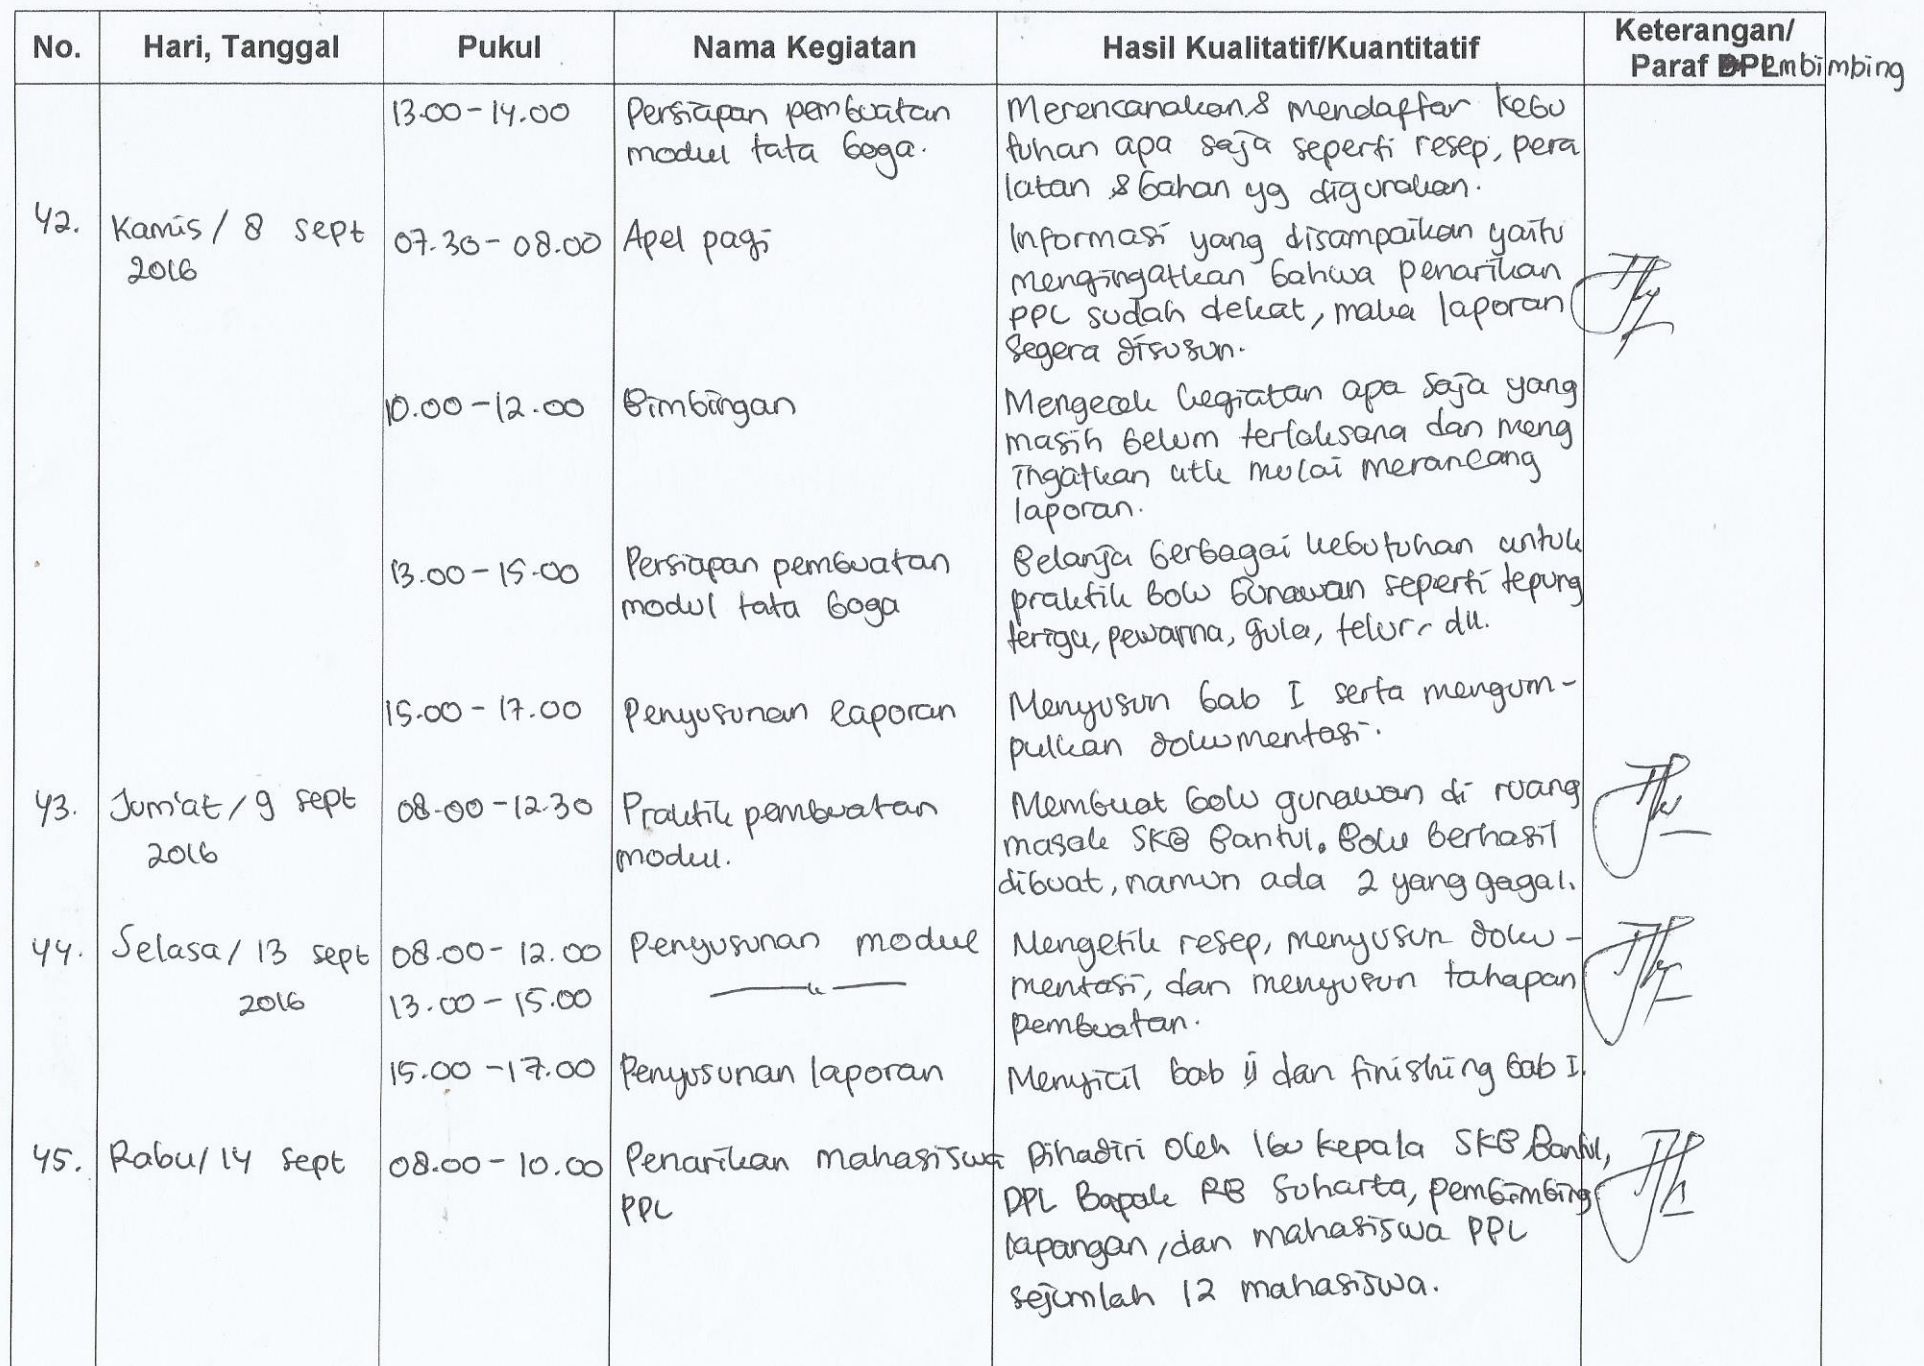 No. Hari, Tanggal Pukul Nama Kegiatan Hasil Kualitatif/Kuantitatif Keterangan/
Paraf DPL Pembimbing
13.00 - 14.00 Persiapan pembuatan Merencanakan & mendaftar kebu
modul tata boga. tuhan apa saja seperti resep, pera
latan & bahan yg digunakan.
42. Kamis / 8 sept 07.30 - 08.00 Apel pagi Informasi yang disampaikan yaitu
2016 mengingatkan bahwa penarikan
PPL sudah dekat, maka laporan
segera disusun.
10.00 - 12.00 Bimbingan Mengecek kegiatan apa saja yang
masih belum terlaksana dan meng
ingatkan utk mulai merancang
laporan.
13.00 - 15.00 Persiapan pembuatan Belanja berbagai kebutuhan untuk
modul tata boga praktik bolu gunawan seperti tepung
terigu, pewarna, gula, telur, dll.
15.00 - 17.00 Penyusunan laporan Menyusun bab I serta mengum-
pulkan dokumentasi.
43. Jum'at / 9 sept 08.00 - 12.30 Praktik pembuatan Membuat bolu gunawan di ruang
2016 modul. masak SKB Bantul. Bolu berhasil
dibuat, namun ada 2 yang gagal.
44. Selasa / 13 sept 08.00 - 12.00 Penyusunan modul Mengetik resep, menyusun doku-
2016 13.00 - 15.00 —— " —— mentasi, dan menyusun tahapan
pembuatan.
15.00 - 17.00 Penyusunan laporan Menyicil bab ii dan finishing bab I.
45. Rabu / 14 sept 08.00 - 10.00 Penarikan mahasiswa Dihadiri oleh Ibu kepala SKB Bantul,
PPL DPL Bapak RB Suharta, pembimbing
lapangan, dan mahasiswa PPL
sejumlah 12 mahasiswa.